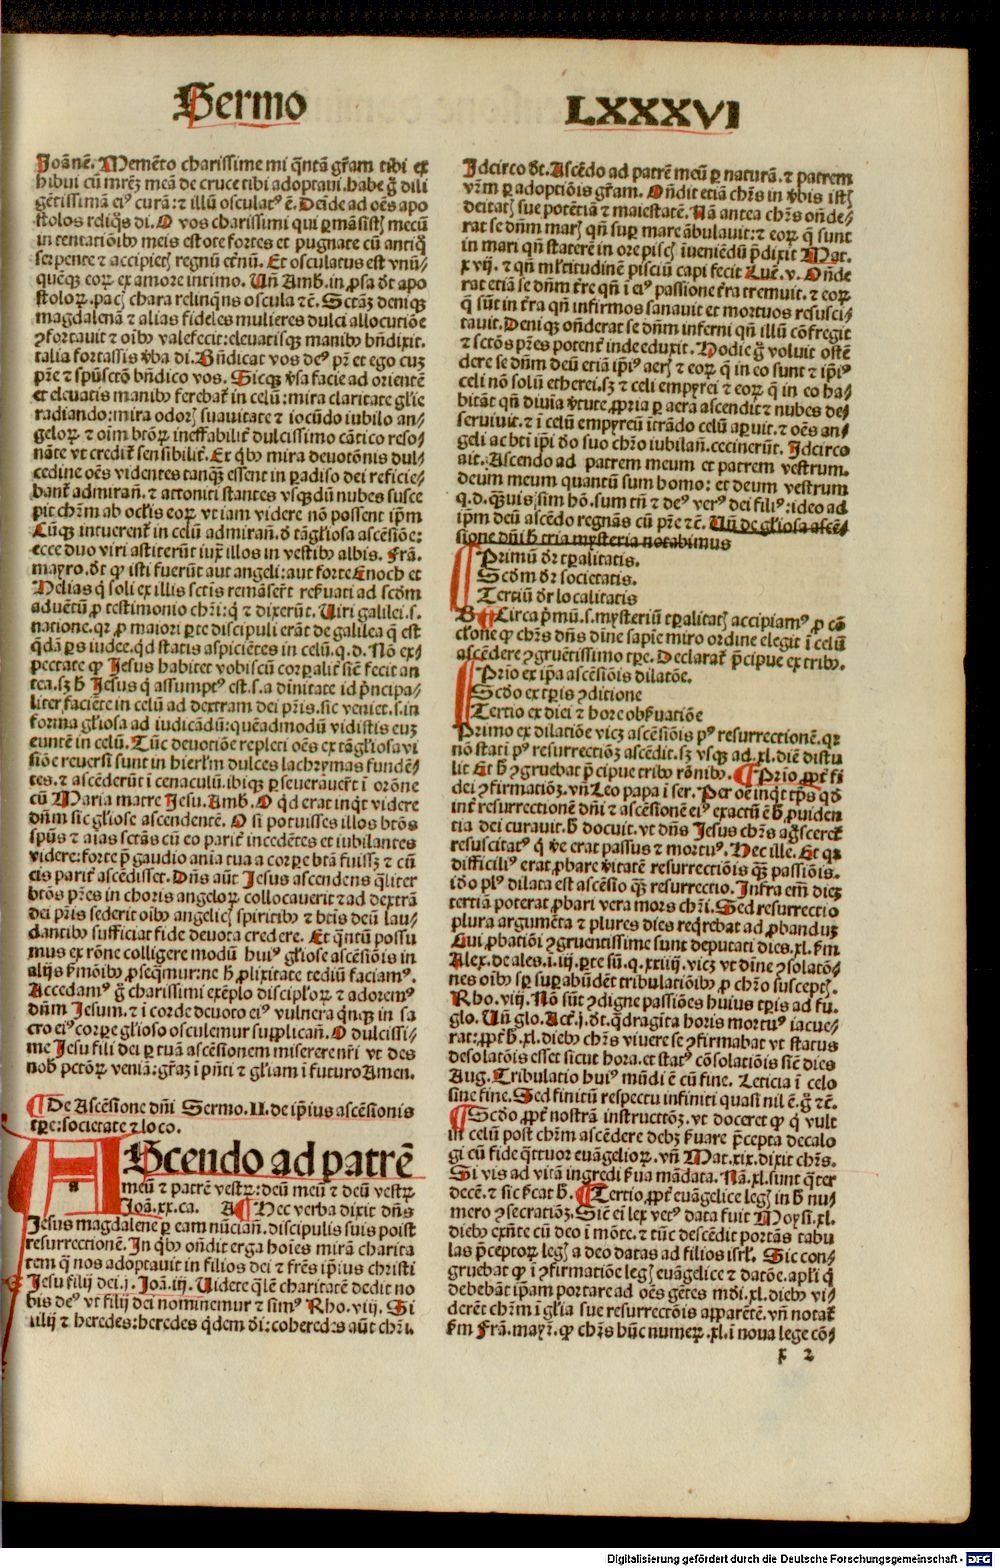 Sermo LXXXVI
Joãnẽ. Memẽto charissime mi qͣntã gr̃am tibi ex
hibui cũ mrẽꝫ meã de cruce tibi adoptaui. habe g̃ dili
gẽtissimã eiꝰ curã: ⁊ illũ osculatꝰ ẽ. Deĩde ad oẽs apo
stolos reliqͦs di. O vos charissimi qui ꝑmãsistꝭ mecũ
in tentatiõibꝰ meis estote fortes et pugnate cũ antiqͦ
serpente ⁊ accipietꝭ regnũ et̃nũ. Et osculatus est vnũ/
quẽqꝫ eoꝝ ex amore intimo. Uñ Amb. in ꝓsa d̃t apo
stoloꝝ. pacꝭ chara relinqͤns oscula ⁊c̃. Sctãꝫ deniqꝫ
magdalenã ⁊ alias fideles mulieres dulci allocutiõe
ꝯfortauit ⁊ oĩbꝰ valefecit: eleuatisqꝫ manibꝰ bñdixit.
talia fortassis v̾ba di. Bñdicat vos deꝰ pr̃ et ego cuꝫ
pr̃e ⁊ spũsctõ bñdico vos. Sicqꝫ v̾sa facie ad orientẽ
et eleuatis manibꝰ ferebat̃ in celũ: mira claritate gl̃ie
radiando: mira odorꝭ suauitate ⁊ iocũdo iubilo an/
geloꝝ ⁊ oĩm btõꝝ ineffabilit̃ dulcissimo cãtico reso/
nãte vt credit̃ sensibilit̃. Ex qͥbꝰ mira deuotõnis dul/
cedine oẽs videntes tanqꝫ essent in ꝑadiso dei reficie/
bant̃ admirañ. ⁊ attoniti stantes vsqꝫdũ nubes susce
pit chr̃m ab ocl̃is eoꝝ vt iam videre nõ possent ip̃m
Cũqꝫ intuerent̃ in celũ admirañ. d̾ tã gl̃iosa ascẽsiõe:
ecce duo viri astiterũt iuxͭ illos in vestibꝰ albis. Frã.
mayro. d̃t ꝙ isti fuerũt aut angeli: aut forte Enoch et
Helias qͥ soli ex illis sctis remãser̃t res̾uati ad scd̃m
aduẽtũ ꝓ testimonio chr̃i: qͥ ⁊ dixerũt. Uiri galilei. s.
natione. qꝛ ꝓ maiori ꝑte discipuli erãt de galilea q̃ est
qͤdã ꝑs iudee. qd statis aspiciẽtes in celũ. q. d. Nõ ex/
pectate ꝙ Jesus habitet vobiscũ corꝑalit̃ sicẽ fecit an
tea. sꝫ h̾ Jesus qͥ assumptꝰ est. s. a diuinitate id p̃ncipa/
liter faciẽte in celũ ad dextram dei pr̃is. sic veniet. s. in
forma gl̃iosa ad iudicãdũ: quẽadmodũ vidistis euꝫ
euntẽ in celũ. Tũc deuotiõe repleti oẽs ex tã gl̃iosa vi
siõe reuersi sunt in hierl̃m dulces lachrymas fundẽ/
tes. ⁊ ascẽderũt ĩ cenaculũ. ibiqꝫ ꝑseuerãuer̃t ĩ or̃one
cũ Maria matre Jesu. Amb. O qͥd erat inqͥt videre
dñm sic gl̃iose ascendentẽ. O si potuisses illos btõs
spũs ⁊ aĩas sctãs cũ eo parit̃ incedẽtes et iubilantes
videre: forte p̃ gaudio anĩa tua a corꝑe btã fuissꝫ ⁊ cũ
eis parit̃ ascẽdisset. Dñs aũt Jesus ascendens qͣliter
btõs pr̃es in choris angeloꝝ collocauerit ⁊ ad dextrã
dei pr̃is sederit oĩbꝰ angelicꝭ spiritibꝰ ⁊ btis deũ lau/
dantibꝰ sufficiat fide deuota credere. Et qͣntũ possu
mus ex rõne colligere modũ huiꝰ gl̃iose ascẽsiõis in
alijs s̾mõibꝰ ꝓseqͥmur: ne h̾ ꝓlixitate tediũ faciamꝰ.
Accedamꝰ g̃ charissimi exẽplo discipl̃oꝝ ⁊ adoremꝰ
dñm Jesum. ⁊ ĩ corde deuoto eiꝰ vulnera qͥnqꝫ in sa
cro eiꝰ corꝑe gl̃ioso osculemur supplicañ. O dulcissi/
me Jesu fili dei ꝑ tuã ascẽsionem miserere nr̃i vt des
nobꝭ pctõꝝ veniã: gr̃aꝫ ĩ pñti ⁊ gl̃iam ĩ futuro Amen.
¶ De Ascẽsione dñi Sermo. II. de ip̃ius ascẽsionis
tꝑe: societate ⁊ loco.
AScendo ad patrẽ
meũ ⁊ patrẽ vestꝝ: deũ meũ ⁊ deũ vestꝝ
Joã. xx. ca. A ¶ Hec verba dixit dñs
Jesus magdalene ꝑ eam nũciañ. discipulis suis post
resurrectionẽ. In qͥbꝰ oñdit erga hoĩes mirã charita
tem qͣ nos adoptauit in filios dei ⁊ fr̃es ip̃ius christi
Jesu filij dei. j. Joã. iij. Uidete qͣlẽ charitatẽ dedit no
bis deꝰ vt filij dei nominemur ⁊ simꝰ Rho. viij. Si
filij ⁊ heredes: heredes qͥdem dĩ: coheredes aũt chr̃i.
Jdcirco d̃t. Ascẽdo ad patrẽ meũ ꝑ naturã. ⁊ patrem
vr̃m ꝑ adoptiõis gr̃am. Oñdit etiã chr̃s in v̾bis istꝭ
deitatꝭ sue potẽtiã ⁊ maiestatẽ. Nã antea chr̃s oñde/
rat se dñm marꝭ qñ suꝑ mare ãbulauit: ⁊ eoꝝ q̃ sunt
in mari qñ staterẽ in ore piscꝭ iueniẽdũ p̃dixit Mat.
xvij. ⁊ qñ ml̃titudinẽ pisciũ capi fecit Luc̃. v. Oñde
rat etiã se dñm t̃re qñ ĩ eiꝰ passione t̃ra tremuit. ⁊ eoꝝ
q̃ sũt in t̃ra qñ infirmos sanauit et mortuos resusci/
tauit. Deniqꝫ oñderat se dñm inferni qñ illũ cõfregit
⁊ sctõs pr̃es potent̃ inde eduxit. Hodie g̃ voluit ostẽ
dere se dñm deũ etiã ip̃iꝰ aerꝭ ⁊ eoꝝ q̃ in eo sunt ⁊ ip̃iꝰ
celi nõ solũ etherei. sꝫ ⁊ celi empyrei ⁊ eoꝝ q̃ in eo ha/
bitãt qñ diuĩa v̾tute ꝓpria ꝑ aera ascendit ⁊ nubes de/
seruiuit. ⁊ ĩ celũ empyreũ itrãdo celũ aꝑuit. ⁊ oẽs an/
geli ac bti ip̃i d̾o suo chr̃o iubilañ. cecinerũt. Jdcirco
ait. Ascendo ad patrem meum et patrem vestrum.
deum meum quantũ sum homo: et deum vestrum
q. d. qͣꝫuis sim hõ. sum tñ ⁊ deꝰ verꝰ dei filiꝰ: ideo ad
ip̃m deũ ascẽdo regnãs cũ pr̃e ⁊c̃. Uñ de gl̃iosa ascẽ/
sione dñi h̾ tria mysteria notabimus
Primũ dr̃ tꝑalitatis.
Scd̃m dr̃ societatis.
Tertiũ dr̃ localitatis
B ¶ Circa p̃mũ. s. mysteriũ tꝑalitatꝭ accipiamꝰ ꝓ cõ
cl̃one ꝙ chr̃s dñs diuĩe sapĩe miro ordine elegit ĩ celũ
ascẽdere ꝯgruẽtissimo tꝑe. Declarat̃ p̃cipue ex tribꝰ.
Prĩo ex ip̃a ascẽsiõis dilatõe.
Scd̃o ex tꝑis ꝯditione
Tertio ex diei ⁊ hore obs̾uatiõe
Primo ex dilatiõe vicꝫ ascẽsiõis pꝰ resurrectionẽ. qꝛ
nõ statĩ pꝰ resurrectiõꝫ ascẽdit. sꝫ vsqꝫ ad. xl. diẽ distu
lit Et h̾ ꝯgruebat p̃cipue tribꝰ rõnibꝰ. ¶ Prĩo ꝓpt̃ fi
dei ꝯfirmatiõꝫ. vñ Leo papa ĩ ser. Per oẽ inqͥt tp̃s qd̾
int̃ resurrectionẽ dñi ⁊ ascẽsionẽ eiꝰ exactũ ẽ h̾ ꝓuiden
tia dei curauit. h̾ docuit. vt dñs Jesus chr̃s agͦsceret̃
resuscitatꝰ qͥ v̾e erat passus ⁊ mortuꝰ. Hec ille. Et qꝛ
difficiliꝰ erat ꝓbare v̾itatẽ resurrectiõis qͣꝫ passiõis.
iõ plꝰ dilata est ascẽsio qͣꝫ resurrectio. Infra em̃ dieꝫ
tertiã poterat ꝓbari vera mors chr̃i. Sed resurrectio
plura argumẽta ⁊ plures dies reqͥrebat ad ꝓbanduꝫ
Cui ꝓbatiõi ꝯgruentissime sunt deputati dies. xl. s̾m
Alex. de ales. ĩ. iij. ꝑte sũ. q. xxiiij. vicꝫ vt diuĩe ꝯsolatõ/
nes oĩbꝰ sꝑ suꝑabũdẽt tribulatiõibꝰ ꝓ chr̃o susceptꝭ.
Rho. viij. Nõ sũt ꝯdigne passiões huius tꝑis ad fu.
glo. Uñ glo. Act̃. j. d̃t. qͣdragĩta horis mortuꝰ iacue/
rat: ꝓpt̃ h̾. xl. diebꝰ chr̃s viuere se ꝯfirmabat vt status
desolatõis esset sicut hora. et statꝰ cõsolatiõis sic̃ dies
Aug. Tribulatio huiꝰ mũdi ẽ cũ fine. Leticia ĩ celo
sine fine. Sed finitũ respectu infiniti quasi nil ẽ. g̃ ⁊c̃.
¶ Scd̃o ꝓpt̃ nostrã instructõꝫ. vt doceret ꝙ qͥ vult
in celũ post chr̃m ascẽdere debꝫ s̾uare p̃cepta decalo
gi cũ fide qͣttuor euãgelioꝝ. vñ Mat. xix. dixit chr̃s.
Si vis ad vitã ingredi s̾ua mãdata. Nã. xl. sunt qͣter
decẽ. ⁊ sic s̾cat h̾. ¶ Tertio ꝓpt̃ euãgelice legꝭ in h̾ nu/
mero ꝯsecratiõꝫ. Sic̃ ei lex vetꝰ data fuit Moysi. xl.
diebꝰ exñte cũ deo ĩ mõte. ⁊ tũc descẽdit portãs tabu
las p̃ceptoꝝ legꝭ a deo datas ad filios isrl̃. Sic con/
gruebat ꝙ ĩ ꝯfirmatiõe legꝭ euãgelice ⁊ datõe. apl̃i qͥ
debebãt ip̃am portare ad oẽs gẽtes mũdi. xl. diebꝰ vi/
derẽt chr̃m ĩ gl̃ia sue resurrectõis apparẽtẽ. vñ notat̃
s̾m Frã. mayꝝ. ꝙ chr̃s hũc numeꝝ. xl. ĩ noua lege cõ/
x 2
Digitalisierung gefördert durch die Deutsche Forschungsgemeinschaft - DFG